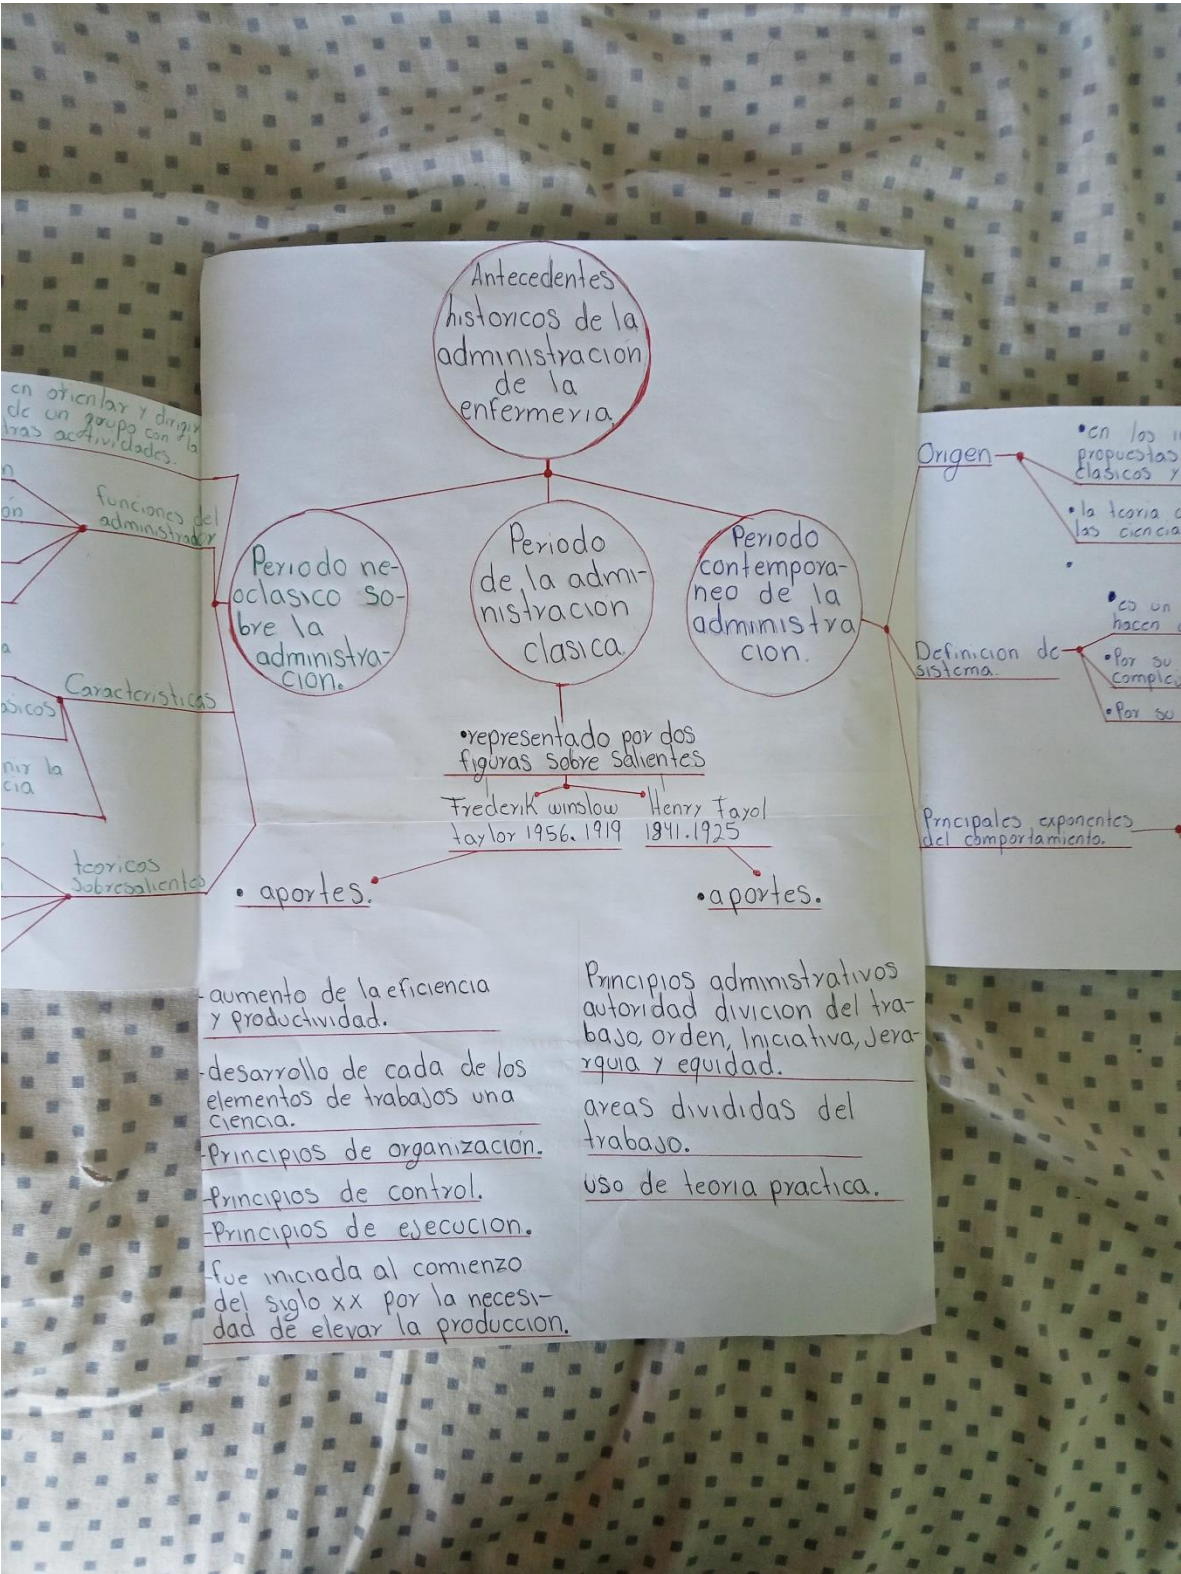 Antecedentes
historicos de la
administracion
de la
enfermeria
Periodo ne-
oclasico so-
bre la
administra-
cion.
Periodo
de la admi-
nistracion
clasica.
Periodo
contempora-
neo de la
administra
cion.
•representado por dos
figuras sobre salientes
Frederik winslow
taylor 1956.1919
Henry Fayol
1841.1925
• aportes.
•aportes.
-aumento de la eficiencia
y productividad.
-desarrollo de cada de los
elementos de trabajos una
ciencia.
-Principios de organización.
-Principios de control.
-Principios de ejecucion.
-fue iniciada al comienzo
del siglo xx por la necesi-
dad de elevar la produccion.
Principios administrativos
autoridad divicion del tra-
bajo, orden, Iniciativa, Jera-
rquia y equidad.
areas divididas del
trabajo.
uso de teoria practica.
en orientar y dirigir
de un grupo con la
tras actividades.
funciones del
administrador
ón
Caracteristicas
asicos
nir la
cia
teoricos
sobresalientes
Origen
•en los i
propuestas
clasicos y
•la teoria
las ciencia
Definicion de
sistema.
•es un
hacen
•Por su
comple
•Por su
Principales exponentes
del comportamiento.